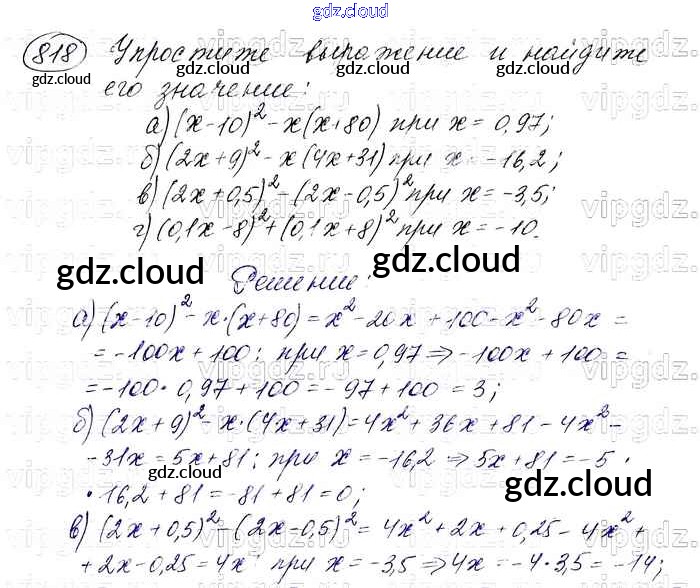 gdz.cloud
818 Упростите выражение и найдите
gdz.cloud gdz.cloud gdz.cloud
его значение:
а) (x-10)² - x(x+80) при x = 0,97;
б) (2x+9)² - x(4x+31) при x = -16,2;
в) (2x+0,5)² - (2x-0,5)² при x = -3,5;
г) (0,1x-8)² + (0,1x+8)² при x = -10.
gdz.cloud gdz.cloud
Решение:
gdz.cloud
а) (x-10)² - x·(x+80) = x² - 20x + 100 - x² - 80x =
= -100x + 100; при x = 0,97 ⇒ -100x + 100 =
= -100 · 0,97 + 100 = -97 + 100 = 3;
gdz.cloud gdz.cloud
б) (2x+9)² - x·(4x+31) = 4x² + 36x + 81 - 4x² -
-31x = 5x + 81; при x = -16,2 ⇒ 5x + 81 = -5 ·
gdz.cloud
· 16,2 + 81 = -81 + 81 = 0;
в) (2x+0,5)² - (2x-0,5)² = 4x² + 2x + 0,25 - 4x² +
gdz.cloud gdz.cloud
+ 2x - 0,25 = 4x при x = -3,5 ⇒ 4x = -4 · 3,5 = -14;